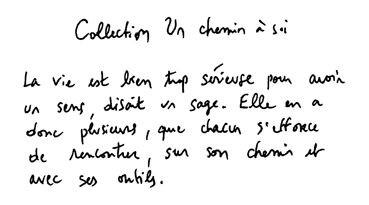 Collection Un chemin à soi
La vie est bien trop sérieuse pour avoir
un sens, disait un sage. Elle en a
donc plusieurs, que chacun s'efforce
de rencontrer, sur son chemin et
avec ses outils.